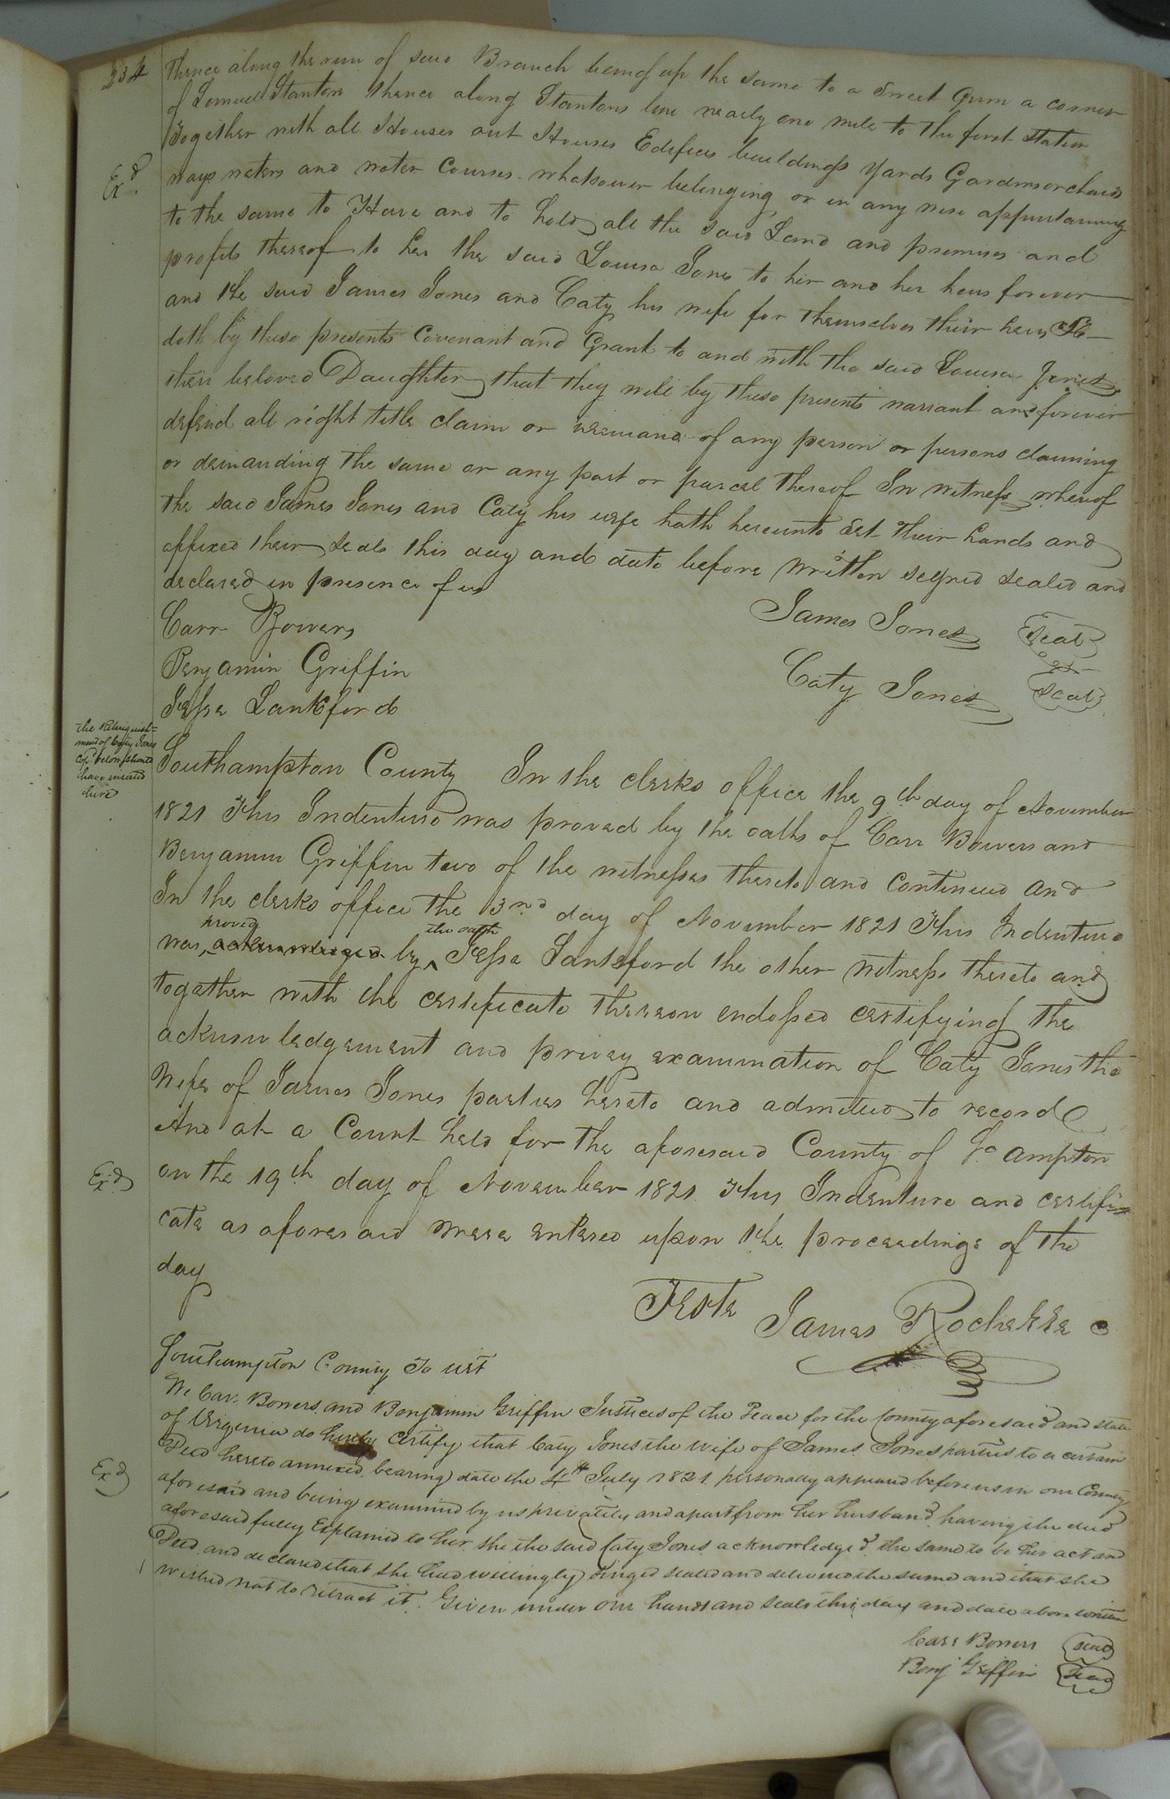 334
thence along the run of said Branch being up the same to a Sweet Gum a corner
of Lemuel Stantons thence along Stantons line nearly one mile to the first station
Together with all Houses out Houses Edefices buildings Yards Gardens orchards
Exd
ways waters and water Courses whatsoever belonging or in any wise appertaining
to the same to Have and to hold all the said Land and premises and
profits thereof to her the said Louisa Jones to her and her heirs forever
and the said James Jones and Caty his wife for themselves their heirs &c
doth by these presents Covenant and Grant to and with the said Louisa Jones
their beloved Daughter that they will by these presents warrant and forever
defend all right title claim or demand of any person or persons claiming
or demanding the same or any part or parcel thereof In witness whereof
the said James Jones and Caty his wife hath hereunto set their hands and
affixed their seals this day and date before written signed sealed and
declared in presence of us
Carr Bowers
James Jones seal
Benjamin Griffin
Caty Jones seal
Jesse Lankford
the relinquish-
ment of Caty Jones
below should
have been inserted
here
Southampton County In the clerks office the 9th day of November
1821 This Indenture was proved by the oaths of Carr Bowers and
Benjamin Griffin two of the witnesses thereto and continued and
In the clerks office the 3nd day of November 1821 This Indenture
proved the oath
was acknowledged by Jesse Lankford the other witness thereto and
together with the certificate thereon endorsed certifying the
acknowledgement and privey examination of Caty Jones the
Wife of James Jones parties hereto and admitted to record
And at a Court held for the aforesaid County of So ampton
Exd
on the 19th day of November 1821 This Indenture and certifi-
cate as aforesaid were entered upon the proceedings of the
day
Teste James Rochelle C
Southampton County To wit
We Carr Bowers and Benjamin Griffin Justices of the Peace for the County aforesaid and state
of Virginia do hereby certify that Caty Jones the wife of James Jones parties to a certain
Exd
Deed hereto annexed bearing date the 4th July 1821 personally appeared before us in our County
aforesaid and being examined by us privately and apart from her husband having the deed
aforesaid fully Explained to her she the said Caty Jones acknowledged the same to be her act and
Deed and declared that she had willingly singed sealed and delivered the same and that she
wished not to retract it. Given under our hands and seals this day and date above written
Carr Bowers seal
Benj Griffin seal